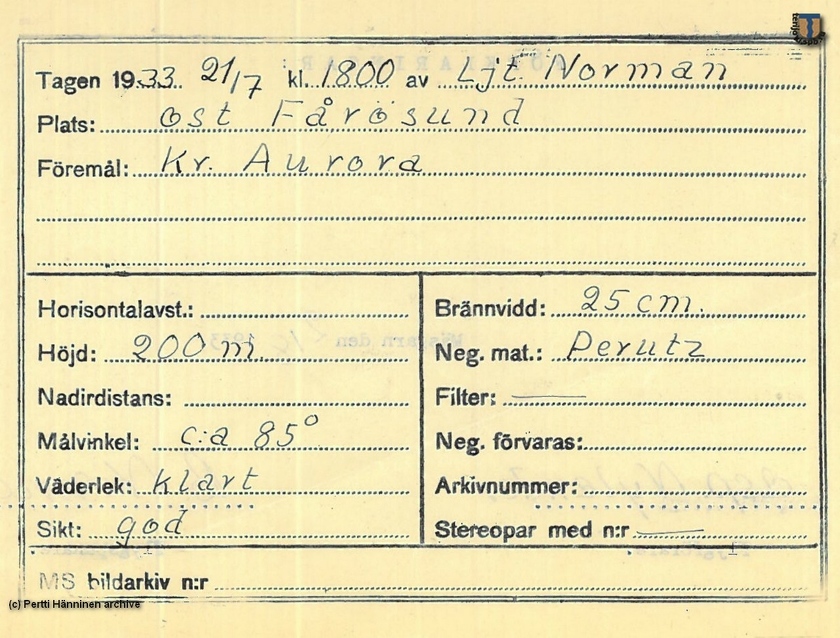 Tagen 1933 21/7 kl. 1800 av Ljt. Norman
Plats: ost Fårösund
Föremål: Kr. Aurora
Horisontalavst.:
Höjd: 200 m.
Nadirdistans:
Målvinkel: c:a 85°
Väderlek: klart
Sikt: god
Brännvidd: 25 cm.
Neg. mat.: Perutz
Filter: —
Neg. förvaras:
Arkivnummer:
Stereopar med n:r —
MS bildarkiv n:r
(c) Pertti Hänninen archive